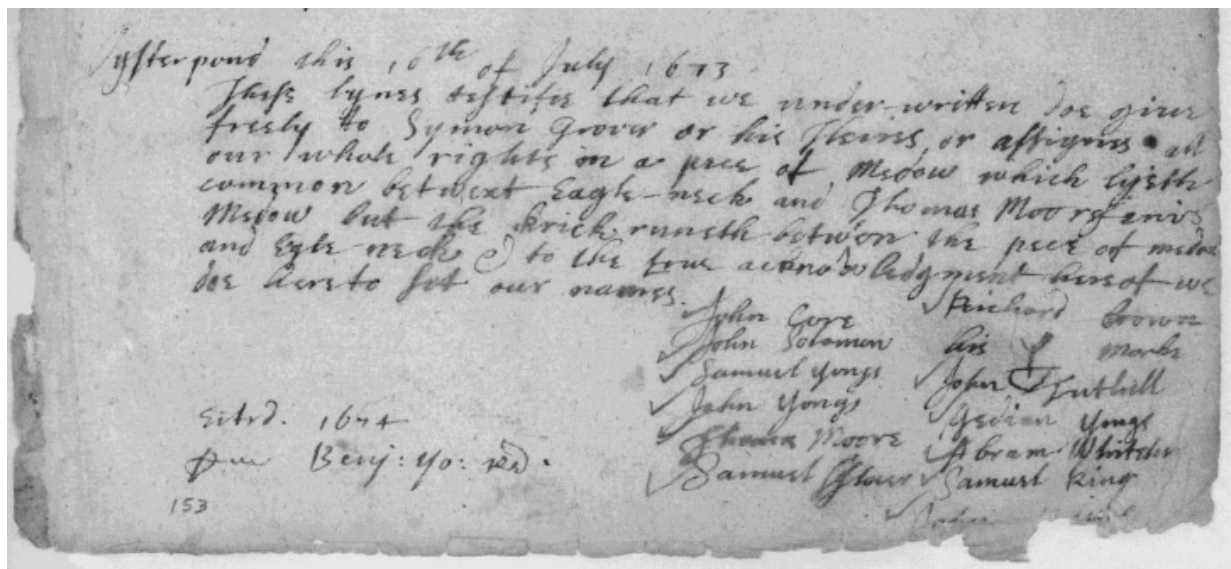 ysterpond this 16th of July 1673
These lynes testifie that we under-written doe give
freely to Symon Grover or his Heires, or assignes all
our whole rights in a pece of Medow which lyeth
common betwext Eagle-neck and Thomas Moors
Medow but the krick runeth betwen the pece of medow
and Egle neck & to the true acknowledgment hereof we
doe hereto set our names.
John Core
John Solomon
Samuel Yongs
John Yongs
Thomas Moore
Samuel
Richard brown
his mark
John Tuthill
Gedian Yongs
Abram Whither
Samuel King
Entrd. 1674
Benj: Yo: Red.
153